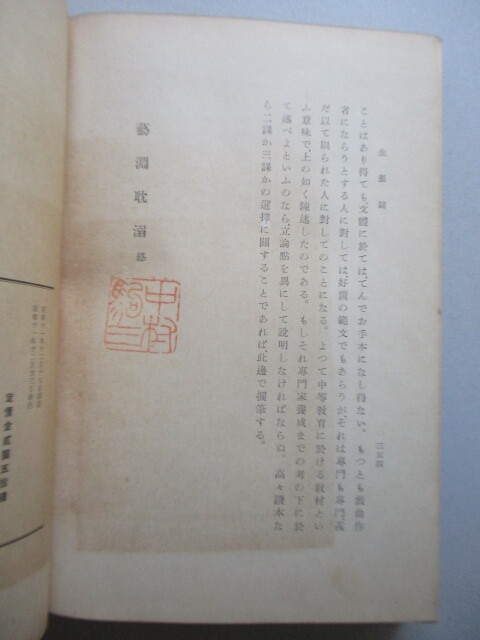 三五四
ことはあり得ても、文體に於ては、てんでお手本になし得ない。もつとも戲曲作
者にならうとする人に對しては、好箇の範文でもあらうが、それは專門も專門、義
だ以て限られた人に對してのことになる。よつて中等教育に於ける教材とい
ふ意味で、上の如く陳述したのである。もしそれ專門家養成までの考の下に於
て述べよといふのなら、立論點を異にして說明しなければならぬ。高々讀本な
ら二課か三課かの選擇に關することであれば、此邊で擱筆する。
藝淵耽溺 終
中村
定價金貳圓五拾錢